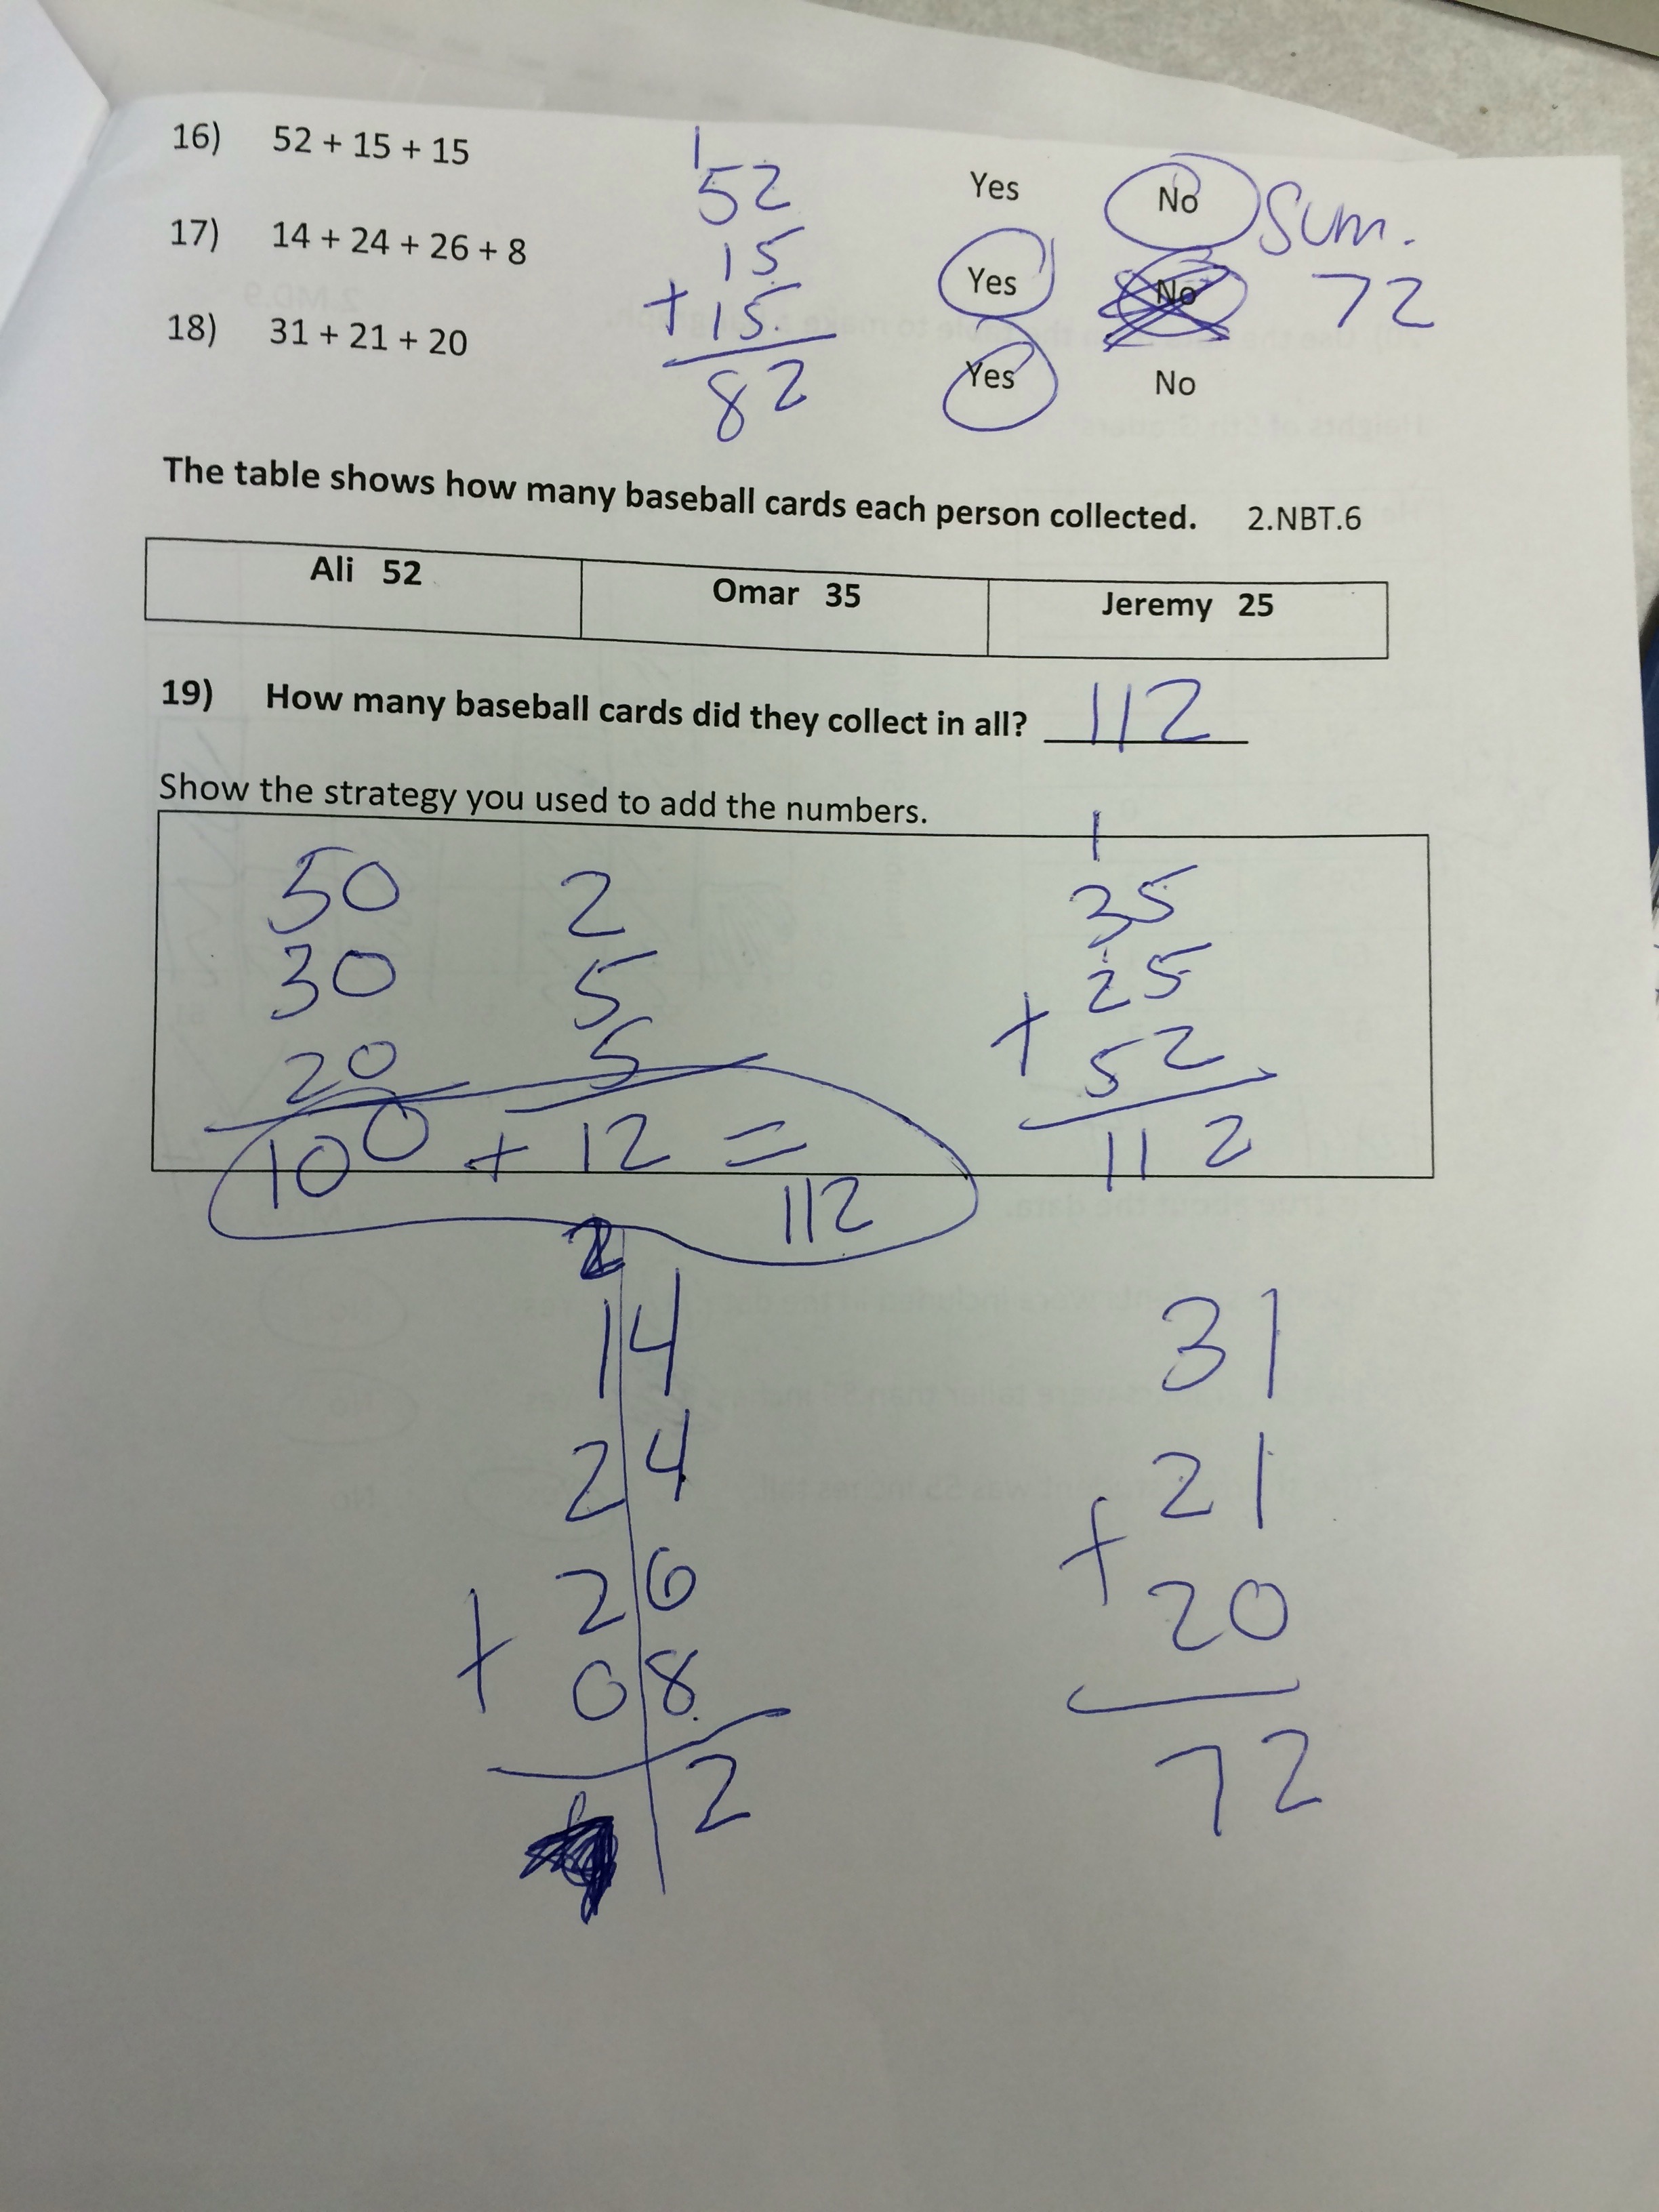 16) 52 + 15 + 15 Yes No Sum.
17) 14 + 24 + 26 + 8 Yes No 72
18) 31 + 21 + 20 Yes No
1
52
15
+ 15
82
The table shows how many baseball cards each person collected. 2.NBT.6
Ali 52 Omar 35 Jeremy 25
19) How many baseball cards did they collect in all? 112
Show the strategy you used to add the numbers.
50 2
30 5
20 5
100 + 12 =
112
1
35
25
+ 52
112
2
14
24
26
+ 08
2
31
21
+ 20
72